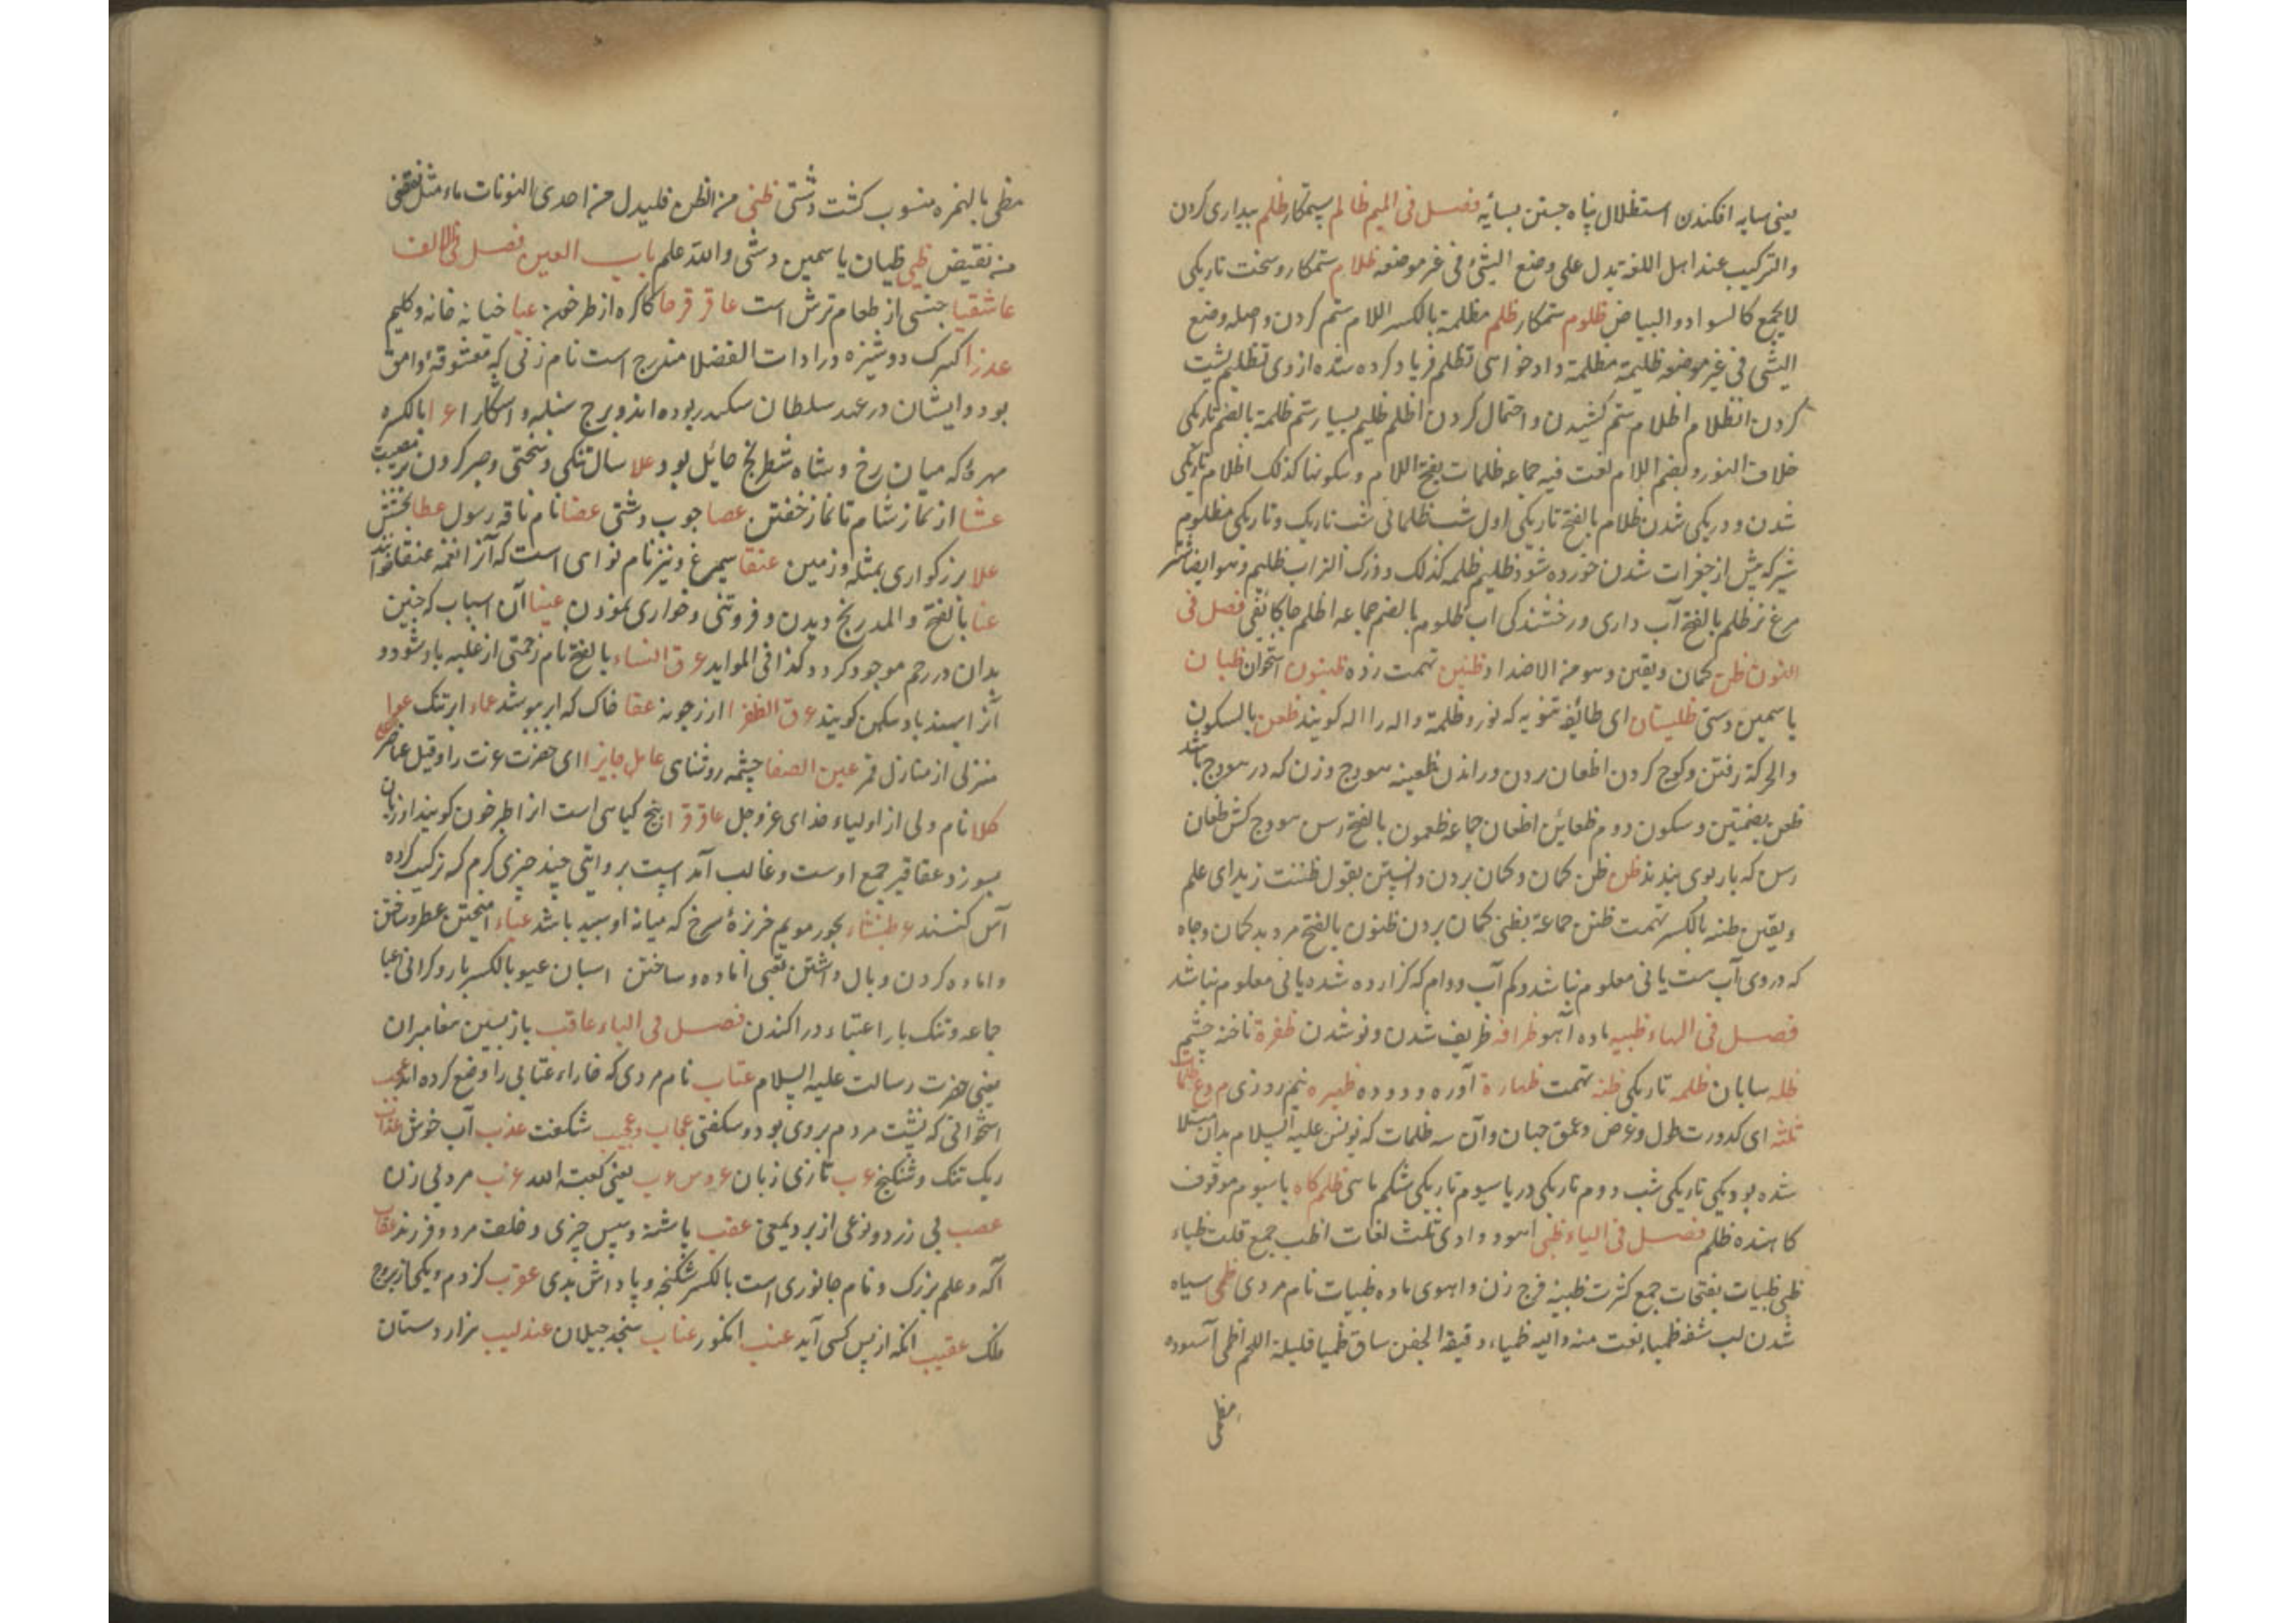 یعنی سایه افکندن استظلال پناه جستن بسایه فصل فی المیم ظالم ستمکار ظلم بیداری کردن
والترکیب عند اهل اللغة یدل علی وضع الشئ فی غیر موضعه ظلام ستمکار و سخت تاریکی
لایجمع کالسواد والبیاض ظلوم ستمکار ظلم مظلمة بالکسر اللام ستم کردن و اصله وضع
الشئ فی غیر موضعه ظلیمة مظلمة دادخواهی تظلم فریاد کرده شده از وی تظلیم
کردن انظلام اظلام ستم کشیدن و احتمال کردن اظلم ظلیم بسیار ستم ظلمة بالضم تاریکی
خلاف النور و بضم اللام لغت فیه جماعه ظلمات بفتح اللام و سکونها کذلک اظلام تاریکی
شدن و در یکی شدن ظلام بالفتح تاریکی اول شب ظلمانی شب تاریک و تاریکی مظلوم
شیر که پیش از جغرات شدن خورده شود ظلیم ظلمه کذلک
مرغ نر ظلم بالفتح آب داری و رخشندگی اب ظلوم بالضم جماعه اظلم فصل فی
النون ظن کمان و یقین و هو من الاضداد ظنین تهمت زده ظینون استخوان ظیان
یاسمین دشتی ظلیتان ای طائفه ثنویه که نور و ظلمة و اله را اله کویند ظعن بالسکون
والحرکة رفتن و کوچ کردن اظعان بردن و راندن ظعینه هودج و زن که در هودج باشد
ظعن بضمتین و سکون دوم ظعائن اظعان جماعه ظعون بالفتح رسن هودج کش ظعان
رسن که بار بوی بندند ظن ظن کمان و کمان بردن و دانستن یقول ظننت زیدا ای علم
و یقین ظنه بالکسر تهمت ظنن جماعة تظنی کمان بردن ظنون بالفتح مرد بد کمان و چاه
که در وی آب هست یا نی معلوم نباشد و کم آب و وام که کزارده شده یا نی معلوم نباشد
فصل فی الهاء ظبیه ماده آهو ظرافه ظریف شدن و نو شدن ظفرة ناخنه چشم
ظله سایبان ظلمه تاریکی ظنه تهمت ظهارة آوره ظهیره نیم روزی
ثلثه ای کدورت طول و عرض و عمق جهان و آن سه ظلمات که یونس علیه السلام بدان مبتلا
شده بود یکی تاریکی شب دوم تاریکی دریا سیوم تاریکی شکم ماهی ظلم کاه با سیوم موقوف
کاهنده ظلم فصل فی الیاء ظبی اهو و وادی ثلث لغات اظب جمع قلت ظباء
ظبی ظبیات بفتحات جمع کثرت ظبیة فرج زن و اهوی ماده ظبیات نام مردی ظمی سیاه
شدن لب شفه ظمیاء نعت منه والیه ظمیاء رقیقة الجفن ساق ظمیا قلیلة اللحم اظمی آسوده
مظمی
مظمی بالهمزه منسوب کشت دشتی ظنی من الظن فلیدل من احدی النونات یاء مثل تقضی
من تقضض ظبی ظیان یاسمین دشتی والله علم باب العین فصل فی الالف
عاشقیا جنسی از طعام ترش است عاقر قرحا کاکره از طرخون عبا خیانه خانه و کلیم
عذرا کبرک دوشیزه و در ادات الفضلا مندرج است نام زنی که معشوقه وامق
بود و ایشان در عهد سلطان سکندر بوده اند و برج سنبله و اشکارا عرا بالکسره
مهره که میان رخ و شاه شطرنج حائل بود علا سال تنکی و سختی و صبر کردن بر مصیبت
عشا از نماز شام تا نماز خفتن عصا چوب دشتی عضبا نام ناقه رسول عطا بخشش
علا بزرکواری بمثله و زمین عنقا سیمرغ و نیز نام نوای است که آنرا نغمه عنقا خوانند
عنا بالفتح والمد رنج دیدن و فروتنی و خواری نمودن عینا آن اسباب که جنین
بدان در رحم موجود کردد کذا فی الموایند عرق النساء بالفتح نام زحمتی از غلبه باد شود و
آنرا اسپند باد سکهن کویند عرق الظفرا ارزجونه عفا خاک که ابر بپوشد عماء ابر تنک عوا
منزلی از منازل قمر عین الصفا چشمه روشنای عامل جایزا ای حضرت عزت را و قیل عناصر
کلا نام ولی از اولیاء خدای عز و جل عاقر قرا بیخ کیاهی است انرا اطرخون کویند او زبان
بسوزد عقاقیر جمع اوست و غالب آمده است بروایتی چند چیزی کرم که ترکیب کرده
آس کنند عطشاء بخور مریم خرزهٔ سرخ که میانه او سپید باشد عباء امیختن عطر و ساختن
و اماده کردن و بال داشتن تعبی اماده و ساختن اسبان عبو بالکسر بار و کرانی اعبا
جماعه و تنک بار اعتباء در اکندن فصل فی الباء عاقب بازپسین مغامبران
یعنی حضرت رسالت علیه السلام عتاب نام مردی که خاراء عتابی را وضع کرده اند عجب
استخوانی که نشست مردم بروی بود و شکفتی عجاب و عجیب شکفت عذب آب خوش
ریک تنک و شکنج عرب تازی زبان عروس عرب یعنی کعبه الله عزب مرد بی زن
عصب پی زرد و نوعی از برد یمنی عقب پاشنه و پس چیزی و خلف مرد و فرزند عقاب
آله و علم بزرک و نام جانوری است بالکسر شکنجه و پاداش بدی عقرب کزدم و یکی از بروج
فلک عقیب آنکه از پس کسی آید عنب انکور عناب سنجد جیلان عندلیب هزار دستان